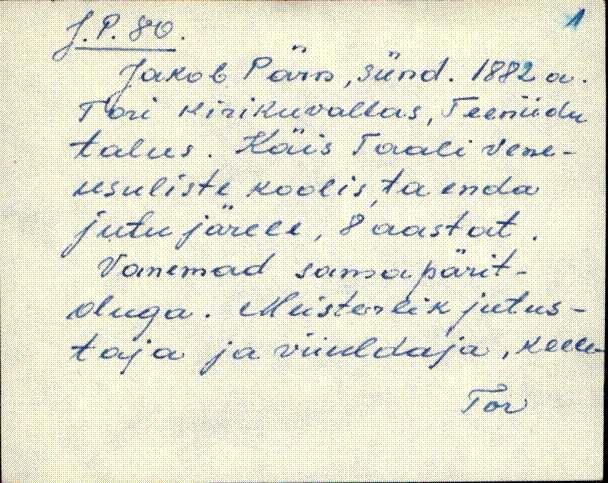 1
J. P. 80.
Jakob Pärn, sünd. 1882 a.
Tori kirikuvallas, Teeniidu
talus. Käis Taali vene-
usuliste koolis, ta enda
jutu järele, 8 aastat.
Vanemad samapärit-
oluga. Meisterlik jutus-
taja ja viiuldaja, keele-
Tor